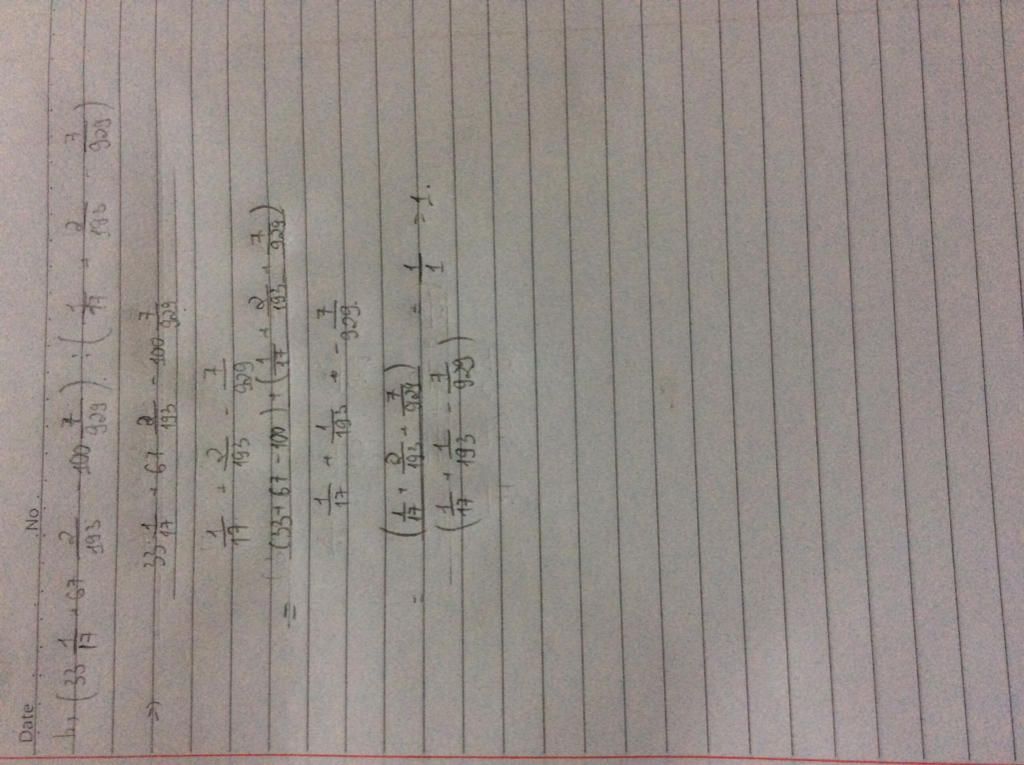 Date No.
h, (33 1/17 + 67 2/193 - 100 7/929) : (1/17 + 2/193 7/929)
=> 33 1/17 + 67 2/193 - 100 7/929
1/17 + 2/193 - 7/929
= (33 + 67 - 100) + (1/17 + 2/193 + 7/929)
1/17 + 1/193 + - 7/929
= (1/17 + 2/193 + 7/929) / (1/17 + 1/193 - 7/929) = 1/1 = 1.